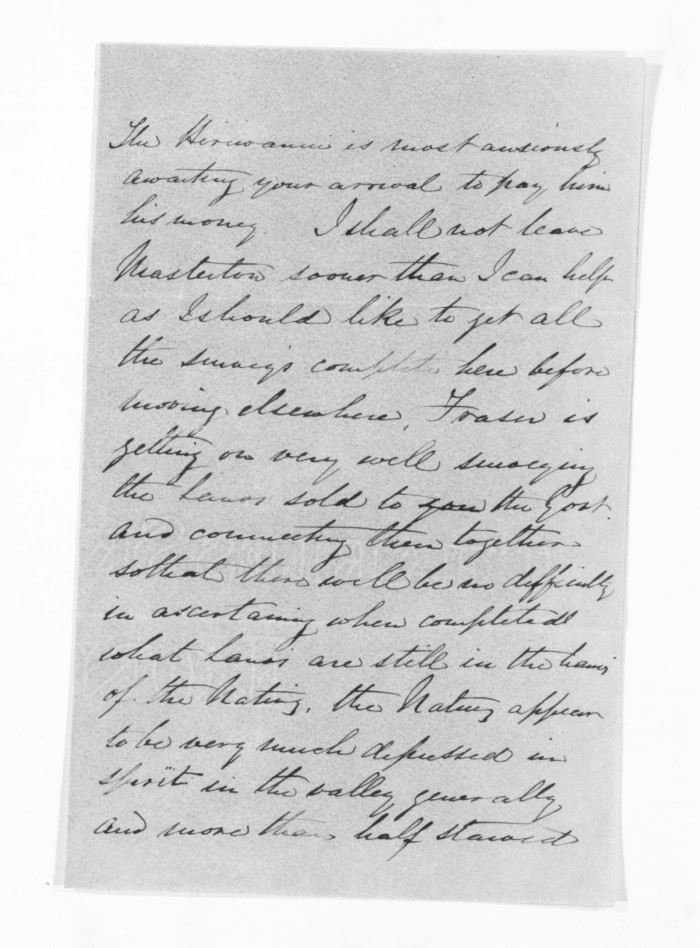 Te Hiriwanui is most anxiously
awaiting your arrival to pay him
his money. I shall not leave
Masterton sooner than I can help
as I should like to get all
the surveys complete here before
moving elsewhere, Fraser is
getting on very well surveying
the lands sold to you the Govt.
and connecting them together
so that there will be no difficulty
in ascertaining when completed
what lands are still in the hands
of the Natives, the Natives appear
to be very much depressed in
spirit in the valley generally
and more than half starved